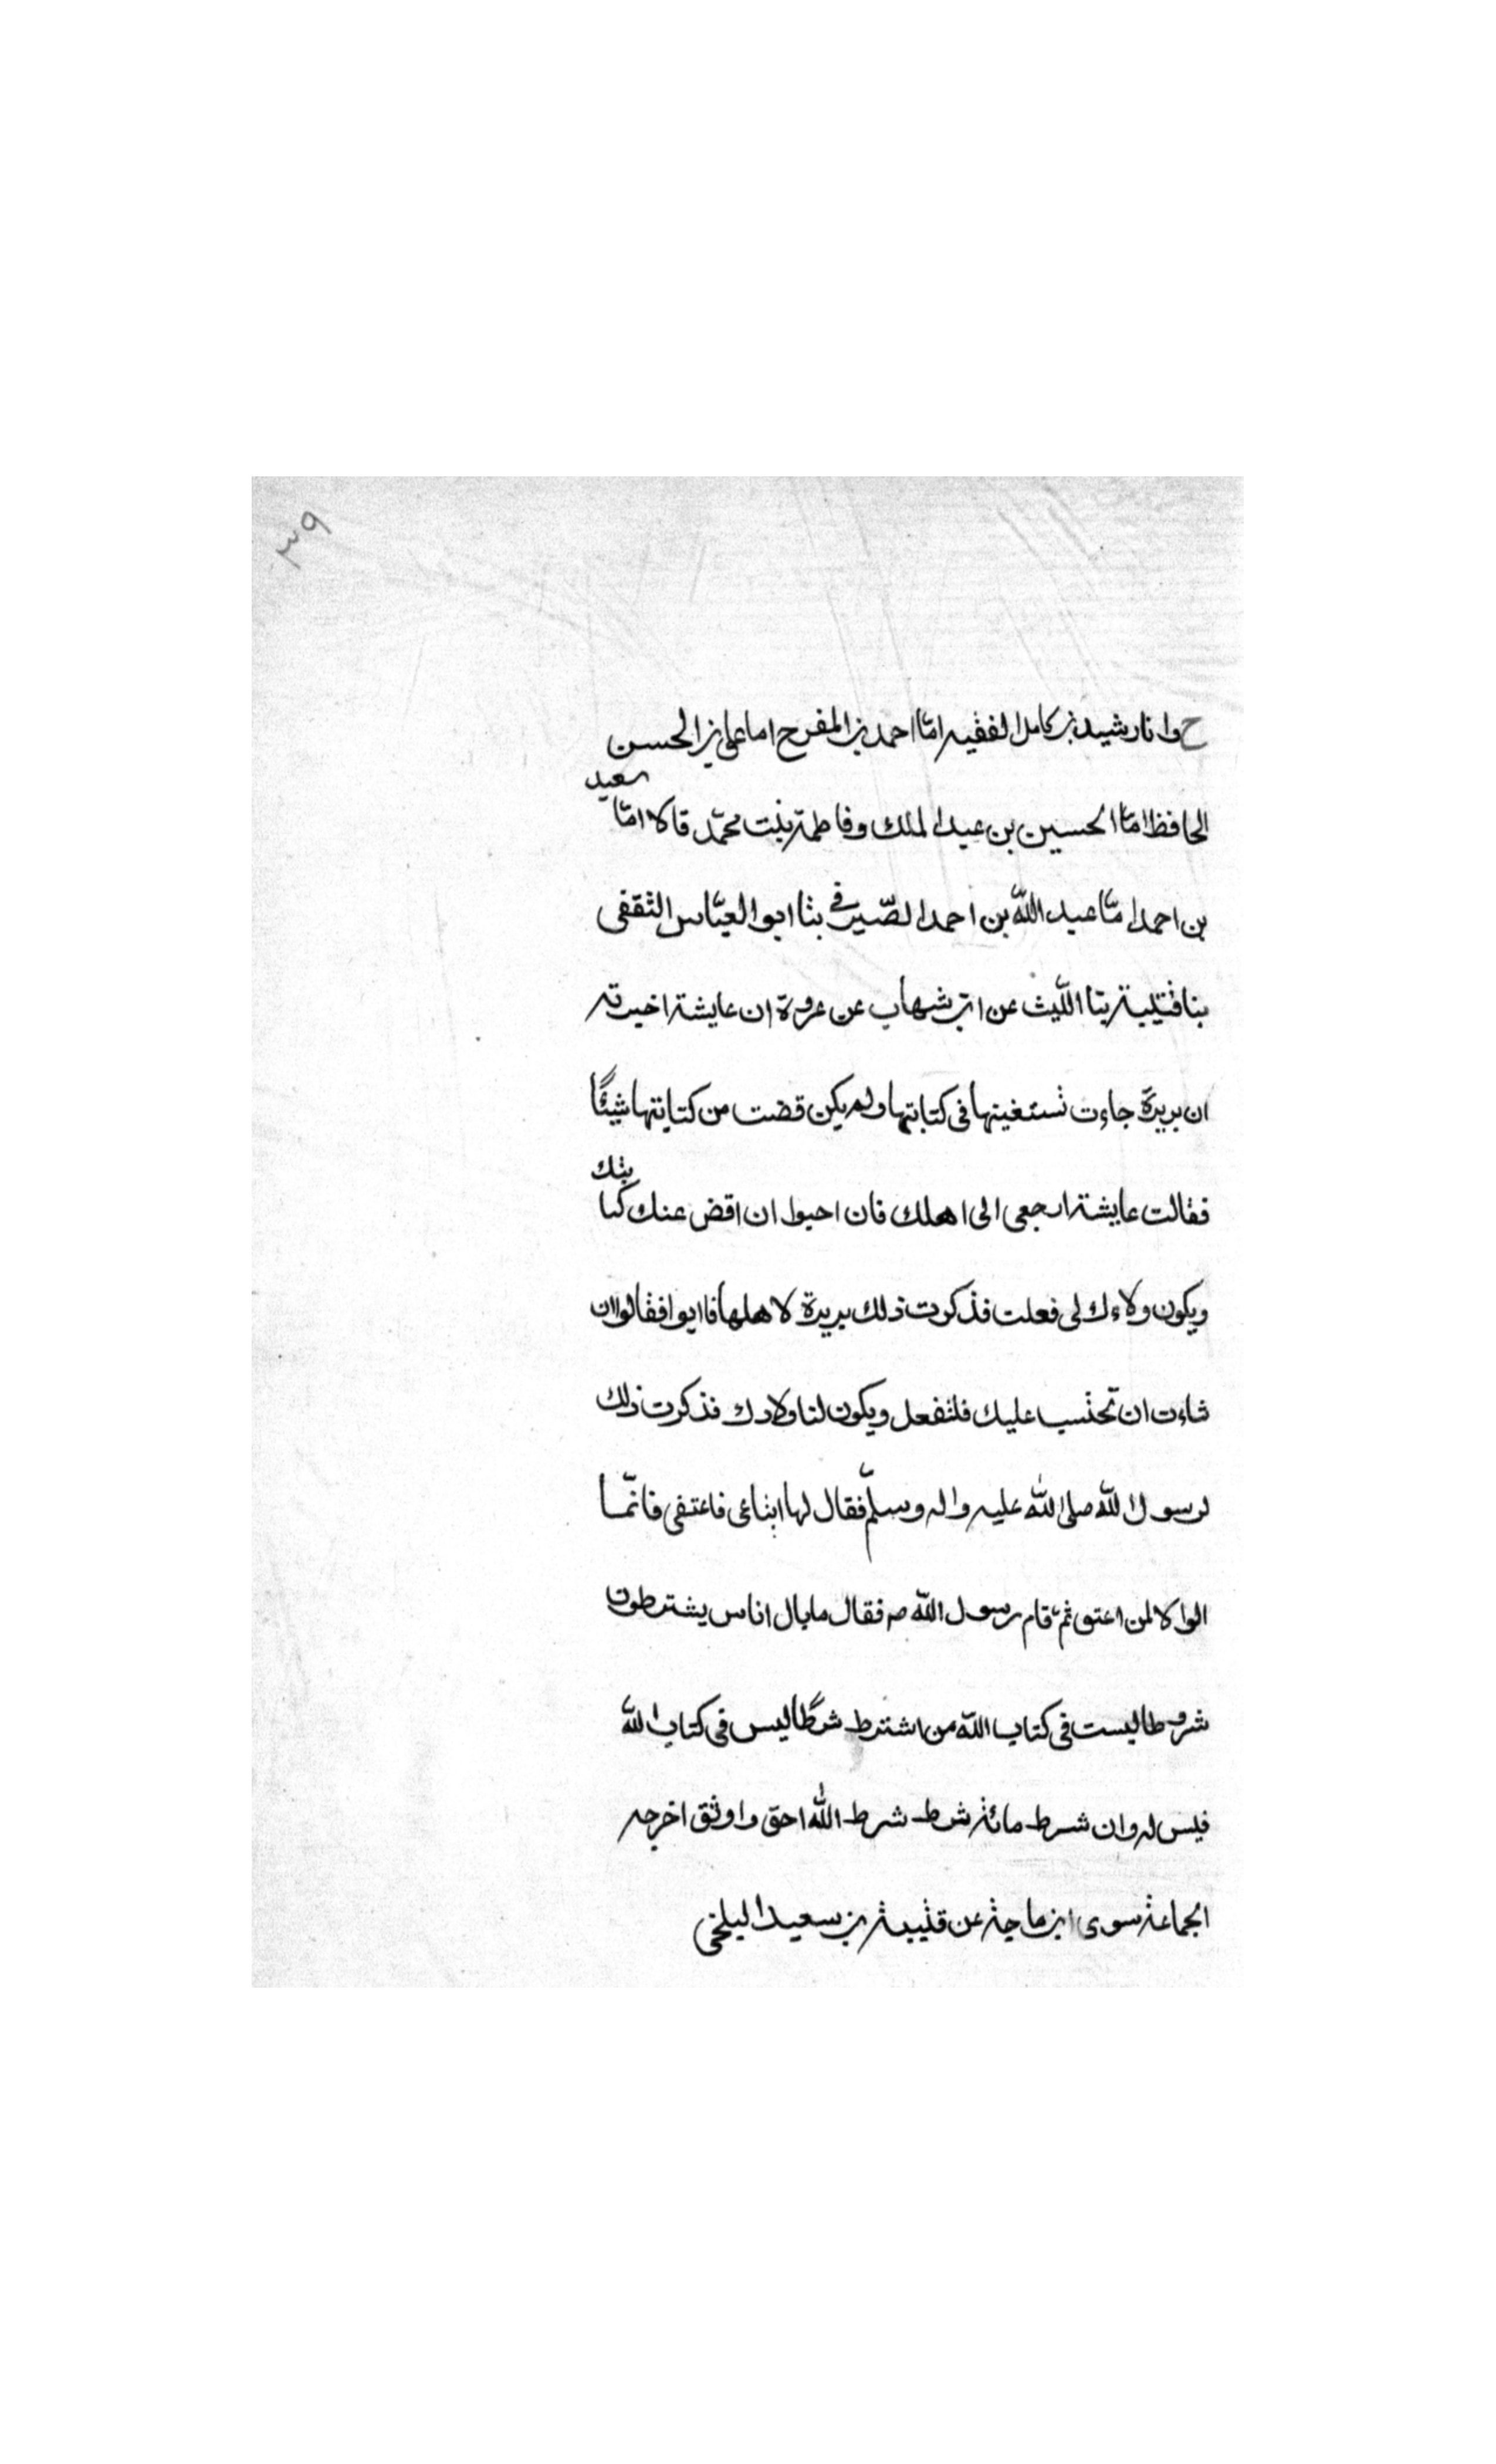 ٣٩
ح وانا رشيد بن كامل الفقيه امّا احمد بن المفرح اما على بن الحسن
الحافظ امّا الحسين بن عبد الملك وفاطمة بنت محمّد قالا امّا سعيد
بن احمد امّا عبد اللّه بن احمد الصّيرفى بنا ابو العبّاس الثقفى
بنا قتيبة بنا اللّيث عن ابن شهاب عن عروة ان عايشة اخبرته
ان بريرة جاءت تستعينها فى كتابتها ولم يكن قضت من كتابتها شيئًا
فقالت عايشة ارجعى الى اهلك فان احبوا ان اقض عنك كتابتك
ويكون ولاءك لى فعلت فذكرت ذلك بريرة لاهلها فابوا فقالوا ان
شاءت ان تحتسب عليك فلتفعل ويكون لنا ولاءك فذكرت ذلك
لرسول اللّه صلى اللّه عليه واله وسلّم فقال لها ابتاعى فاعتقى فانّما
الولا لمن اعتق ثمّ قام رسول اللّه ص فقال ما بال اناس يشترطون
شروطا ليست فى كتاب اللّه من اشترط شرطًا ليس فى كتاب اللّه
فليس له وان شرط مائة شرط شرط اللّه احقّ واوثق اخرجه
الجماعة سوى ابن ماجة عن قتيبة بن سعيد البلخى